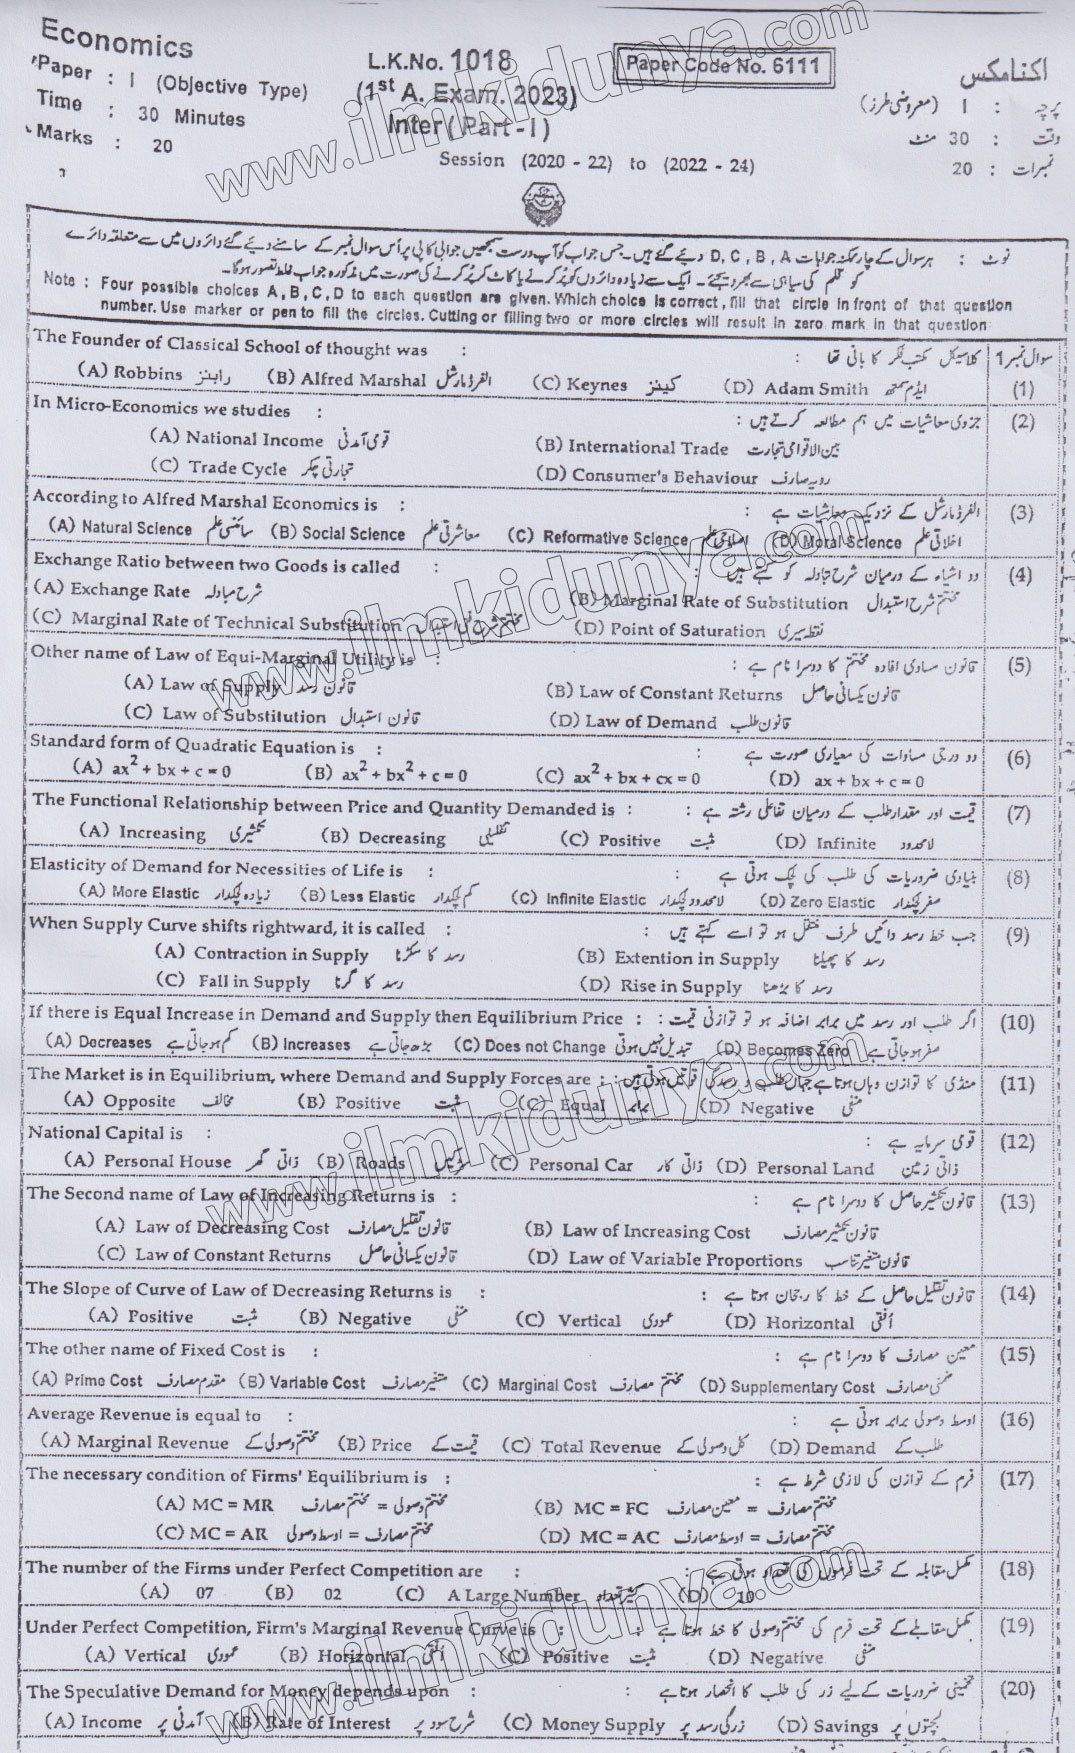 Economics
Paper : I (Objective Type)
Time : 30 Minutes
Marks : 20
L.K.No. 1018
(1st A. Exam. 2023)
Inter (Part - I)
Session (2020 - 22) to (2022 - 24)
Paper Code No. 6111
اکنامکس
پرچہ : I (معروضی طرز)
وقت : 30 منٹ
نمبرات : 20
نوٹ : ہر سوال کے چار ممکنہ جوابات D, C, B, A دیئے گئے ہیں۔ جس جواب کو آپ درست سمجھیں جوابی کاپی پر اُس سوال نمبر کے سامنے دیئے گئے دائروں میں سے متعلقہ دائرے
کو قلم کی سیاہی سے بھر دیجئے۔ ایک سے زیادہ دائروں کو پُر کرنے یا کاٹ کر پُر کرنے کی صورت میں مذکورہ جواب غلط تصور ہوگا۔
Note : Four possible choices A, B, C, D to each question are given. Which choice is correct, fill that circle in front of that question
number. Use marker or pen to fill the circles. Cutting or filling two or more circles will result in zero mark in that question
The Founder of Classical School of thought was : کلاسیکل مکتب فکر کا بانی تھا : سوال نمبر 1
(A) Robbins رابنز (B) Alfred Marshal الفرڈ مارشل (C) Keynes کینز (D) Adam Smith ایڈم سمتھ (1)
In Micro-Economics we studies : جزوی معاشیات میں ہم مطالعہ کرتے ہیں : (2)
(A) National Income قومی آمدنی (B) International Trade بین الاقوامی تجارت
(C) Trade Cycle تجارتی چکر (D) Consumer's Behaviour رویہ صارف
According to Alfred Marshal Economics is : الفرڈ مارشل کے نزدیک معاشیات ہے : (3)
(A) Natural Science سائنسی علم (B) Social Science معاشرتی علم (C) Reformative Science اصلاحی علم (D) Moral Science اخلاقی علم
Exchange Ratio between two Goods is called : دو اشیاء کے درمیان شرح تبادلہ کو کہتے ہیں : (4)
(A) Exchange Rate شرح مبادلہ (B) Marginal Rate of Substitution مختتم شرح استبدال
(C) Marginal Rate of Technical Substitution مختتم شرح فنی استبدال (D) Point of Saturation نقطہ سیری
Other name of Law of Equi-Marginal Utility is : قانون مساوی افادہ مختتم کا دوسرا نام ہے : (5)
(A) Law of Supply قانون رسد (B) Law of Constant Returns قانون یکسانی حاصل
(C) Law of Substitution قانون استبدال (D) Law of Demand قانون طلب
Standard form of Quadratic Equation is : دو درجی مساوات کی معیاری صورت ہے : (6)
(A) ax² + bx + c = 0 (B) ax² + bx² + c = 0 (C) ax² + bx + cx = 0 (D) ax + bx + c = 0
The Functional Relationship between Price and Quantity Demanded is : قیمت اور مقدار طلب کے درمیان تفاعلی رشتہ ہے : (7)
(A) Increasing تکثیری (B) Decreasing تقلیلی (C) Positive مثبت (D) Infinite لامحدود
Elasticity of Demand for Necessities of Life is : بنیادی ضروریات کی طلب کی لچک ہوتی ہے : (8)
(A) More Elastic زیادہ لچکدار (B) Less Elastic کم لچکدار (C) Infinite Elastic لامحدود لچکدار (D) Zero Elastic صفر لچکدار
When Supply Curve shifts rightward, it is called : جب خط رسد دائیں طرف منتقل ہو تو اسے کہتے ہیں : (9)
(A) Contraction in Supply رسد کا سکڑنا (B) Extention in Supply رسد کا پھیلنا
(C) Fall in Supply رسد کا گرنا (D) Rise in Supply رسد کا بڑھنا
If there is Equal Increase in Demand and Supply then Equilibrium Price : اگر طلب اور رسد میں برابر اضافہ ہو تو توازنی قیمت : (10)
(A) Decreases کم ہو جاتی ہے (B) Increases بڑھ جاتی ہے (C) Does not Change تبدیل نہیں ہوتی (D) Becomes Zero صفر ہو جاتی ہے
The Market is in Equilibrium, where Demand and Supply Forces are : منڈی کا توازن وہاں ہوتا ہے جہاں طلب و رسد کی قوتیں ہوتی ہیں : (11)
(A) Opposite مخالف (B) Positive مثبت (C) Equal برابر (D) Negative منفی
National Capital is : قومی سرمایہ ہے : (12)
(A) Personal House ذاتی گھر (B) Roads سڑکیں (C) Personal Car ذاتی کار (D) Personal Land ذاتی زمین
The Second name of Law of Increasing Returns is : قانون تکثیر حاصل کا دوسرا نام ہے : (13)
(A) Law of Decreasing Cost قانون تقلیل مصارف (B) Law of Increasing Cost قانون تکثیر مصارف
(C) Law of Constant Returns قانون یکسانی حاصل (D) Law of Variable Proportions قانون متغیر تناسب
The Slope of Curve of Law of Decreasing Returns is : قانون تقلیل حاصل کے خط کا رجحان ہوتا ہے : (14)
(A) Positive مثبت (B) Negative منفی (C) Vertical عمودی (D) Horizontal اُفقی
The other name of Fixed Cost is : معین مصارف کا دوسرا نام ہے : (15)
(A) Prime Cost مقدم مصارف (B) Variable Cost متغیر مصارف (C) Marginal Cost مختتم مصارف (D) Supplementary Cost ضمنی مصارف
Average Revenue is equal to : اوسط وصولی برابر ہوتی ہے : (16)
(A) Marginal Revenue مختتم وصولی کے (B) Price قیمت کے (C) Total Revenue کل وصولی کے (D) Demand طلب کے
The necessary condition of Firms' Equilibrium is : فرم کے توازن کی لازمی شرط ہے : (17)
(A) MC = MR مختتم وصولی = مختتم مصارف (B) MC = FC مختتم مصارف = معین مصارف
(C) MC = AR مختتم مصارف = اوسط وصولی (D) MC = AC مختتم مصارف = اوسط مصارف
The number of the Firms under Perfect Competition are : مکمل مقابلہ کے تحت فرموں کی تعداد ہوتی ہے : (18)
(A) 07 (B) 02 (C) A Large Number کثیر تعداد (D) 10
Under Perfect Competition, Firm's Marginal Revenue Curve is : مکمل مقابلے کے تحت فرم کی مختتم وصولی کا خط ہوتا ہے : (19)
(A) Vertical عمودی (B) Horizontal اُفقی (C) Positive مثبت (D) Negative منفی
The Speculative Demand for Money depends upon : تخمینی ضروریات کے لیے زر کی طلب کا انحصار ہوتا ہے : (20)
(A) Income آمدنی پر (B) Rate of Interest شرح سود پر (C) Money Supply زر کی رسد پر (D) Savings بچتوں پر
www.ilmkidunya.com
www.ilmkidunya.com
www.ilmkidunya.com
www.ilmkidunya.com